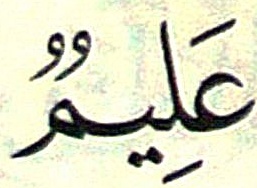 عَلِيمٌ